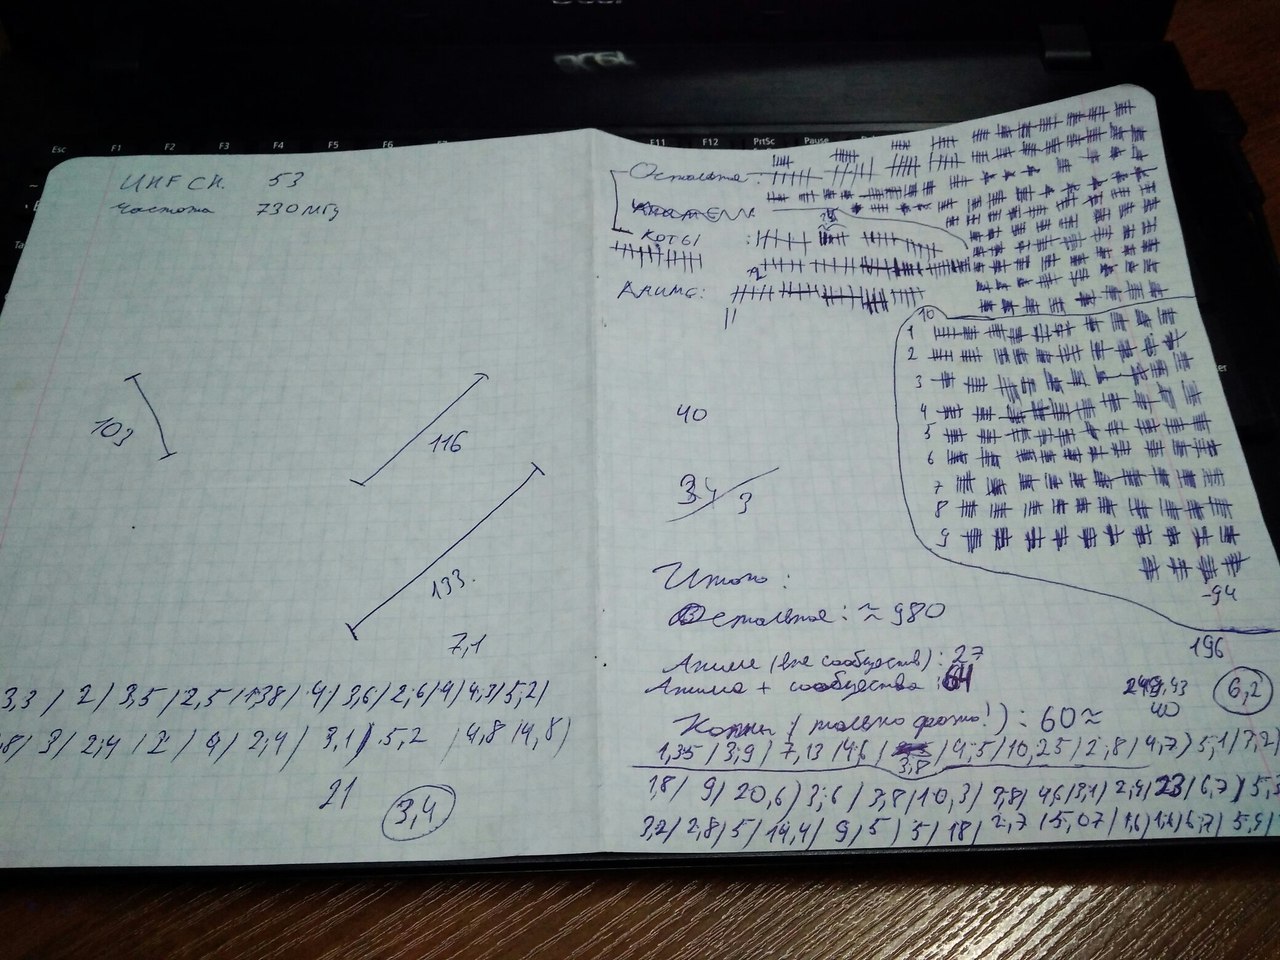 acer
Esc F1 F2 F3 F4 F5 F6 F11 F12 PrtSc Pause
UHF CH. 53
Частота 730 МГц
103
116
133
7,1
3,3 / 2 / 3,5 / 2,5 / 1,38 / 4 / 3,6 / 2,6 / 4 / 4,3 / 5,2 /
,8 / 3 / 2,4 / 2 / 4 / 2,4 / 3,1 / 5,2 / 4,8 / 4,8 /
21
3,4
Остальное:
Коты:
Аниме:
10
1
2
3
4
5
6
7
8
9
-94
196
40
3
Итого:
Остальное: ≈ 980
Аниме (вне сообществ): 27
Аниме + сообщества: 64
Коты (только фото!): 60≈
40
6,2
1,35 / 3,9 / 7,13 / 4,6 / 3,8 / 4,5 / 10,25 / 2,8 / 4,7 / 5,1 / 3,2 /
1,8 / 9 / 20,6 / 3,6 / 3,8 / 10,3 / 9,8 / 4,6 / 3,1 / 2,4 / 23 / 6,7 / 5,3
3,2 / 2,8 / 5 / 14,4 / 9 / 5 / 5 / 18 / 2,7 / 5,07 / 1,6 / 1,4 / 6,7 / 5,9 /